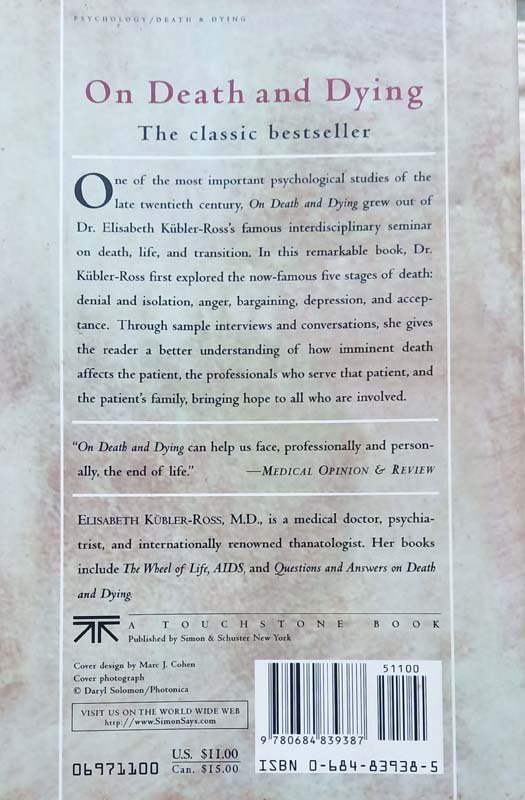 PSYCHOLOGY/DEATH & DYING
On Death and Dying
The classic bestseller
One of the most important psychological studies of the
late twentieth century, On Death and Dying grew out of
Dr. Elisabeth Kübler-Ross's famous interdisciplinary seminar
on death, life, and transition. In this remarkable book, Dr.
Kübler-Ross first explored the now-famous five stages of death:
denial and isolation, anger, bargaining, depression, and accep-
tance. Through sample interviews and conversations, she gives
the reader a better understanding of how imminent death
affects the patient, the professionals who serve that patient, and
the patient's family, bringing hope to all who are involved.
"On Death and Dying can help us face, professionally and person-
ally, the end of life." —MEDICAL OPINION & REVIEW
ELISABETH KÜBLER-ROSS, M.D., is a medical doctor, psychia-
trist, and internationally renowned thanatologist. Her books
include The Wheel of Life, AIDS, and Questions and Answers on Death
and Dying.
A TOUCHSTONE BOOK
Published by Simon & Schuster New York
Cover design by Marc J. Cohen
Cover photograph
© Daryl Solomon/Photonica
VISIT US ON THE WORLD WIDE WEB
http://www.SimonSays.com
06971100
U.S. $11.00
Can. $15.00
51100
9 780684 839387
ISBN 0-684-83938-5